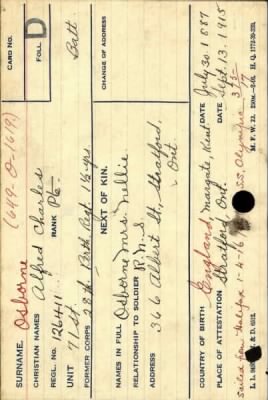 CARD NO.
FOLL D
SURNAME. Osborne (649-O-1619)
CHRISTIAN NAMES Alfred Charles
REGL. NO. 126411 RANK Pte.
UNIT 71st Batt
FORMER CORPS 28th Perth Regt. 1½ yrs
NEXT OF KIN. CHANGE OF ADDRESS
NAMES IN FULL Osborne Mrs. Nellie
RELATIONSHIP TO SOLDIER
ADDRESS 366 Albert St., Stratford,
Ont
COUNTRY OF BIRTH England Margate, Kent. DATE July 30. 1887
PLACE OF ATTESTATION Stratford, Ont. DATE Sept. 13. 1915
Sailed from Halifax 1-4-16 SS. Olympic
M. F. W. 22. H. Q. 1772-39-339.